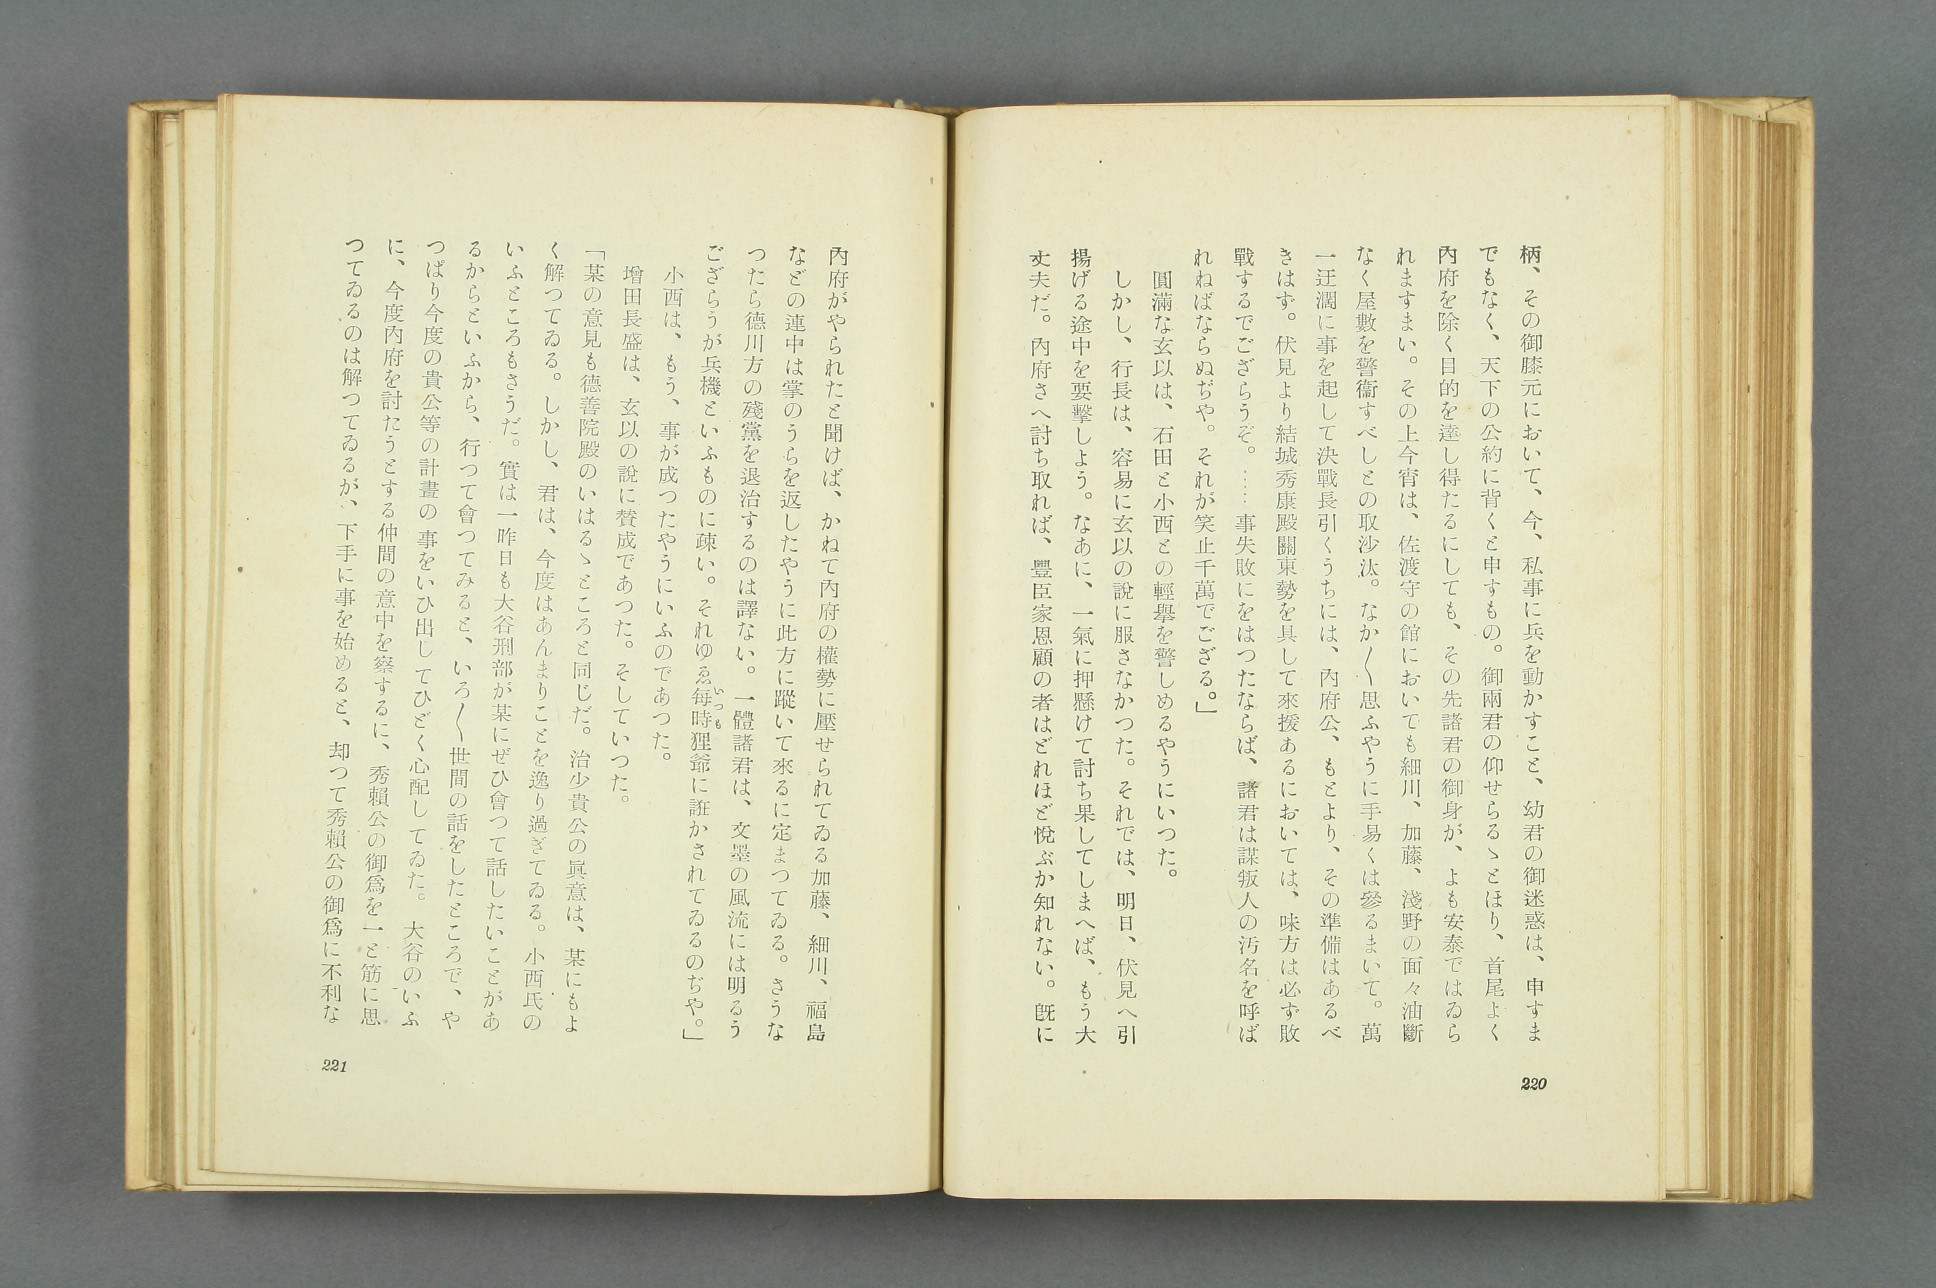 柄、その御膝元において、今、私事に兵を動かすこと、幼君の御迷惑は、申すま
でもなく、天下の公約に背くと申すもの。御兩君の仰せらるゝとほり、首尾よく
內府を除く目的を達し得たるにしても、その先諸君の御身が、よも安泰ではゐら
れますまい。その上今宵は、佐渡守の館においても細川、加藤、淺野の面々油斷
なく屋敷を警衞すべしとの取沙汰。なか〳〵思ふやうに手易くは參るまいて。萬
一迂濶に事を起して決戰長引くうちには、內府公、もとより、その準備はあるべ
きはず。伏見より結城秀康殿關東勢を具して來援あるにおいては、味方は必ず敗
戰するでござらうぞ。……事失敗にをはつたならば、諸君は謀叛人の汚名を呼ば
れねばならぬぢや。それが笑止千萬でござる。」
圓滿な玄以は、石田と小西との輕擧を警しめるやうにいつた。
しかし、行長は、容易に玄以の說に服さなかつた。それでは、明日、伏見へ引
揚げる途中を要擊しよう。なあに、一氣に押懸けて討ち果してしまへば、もう大
丈夫だ。內府さへ討ち取れば、豐臣家恩顧の者はどれほど悅ぶか知れない。旣に
220
內府がやられたと聞けば、かねて內府の權勢に壓せられてゐる加藤、細川、福島
などの連中は掌のうらを返したやうに此方に蹤いて來るに定まつてゐる。さうな
つたら德川方の殘黨を退治するのは譯ない。一體諸君は、文墨の風流には明るう
ござらうが兵機といふものに疎い。それゆゑ每時狸爺に誑かされてゐるのぢや。」
いつも
小西は、もう、事が成つたやうにいふのであつた。
增田長盛は、玄以の說に賛成であつた。そしていつた。
「某の意見も德善院殿のいはるゝところと同じだ。治少貴公の眞意は、某にもよ
く解つてゐる。しかし、君は、今度はあんまりことを逸り過ぎてゐる。小西氏の
いふところもさうだ。實は一昨日も大谷刑部が某にぜひ會つて話したいことがあ
るからといふから、行つて會つてみると、いろ〳〵世間の話をしたところで、や
つぱり今度の貴公等の計畫の事をいひ出してひどく心配してゐた。大谷のいふ
に、今度內府を討たうとする仲間の意中を察するに、秀賴公の御爲を一と筋に思
つてゐるのは解つてゐるが、下手に事を始めると、却つて秀賴公の御爲に不利な
221